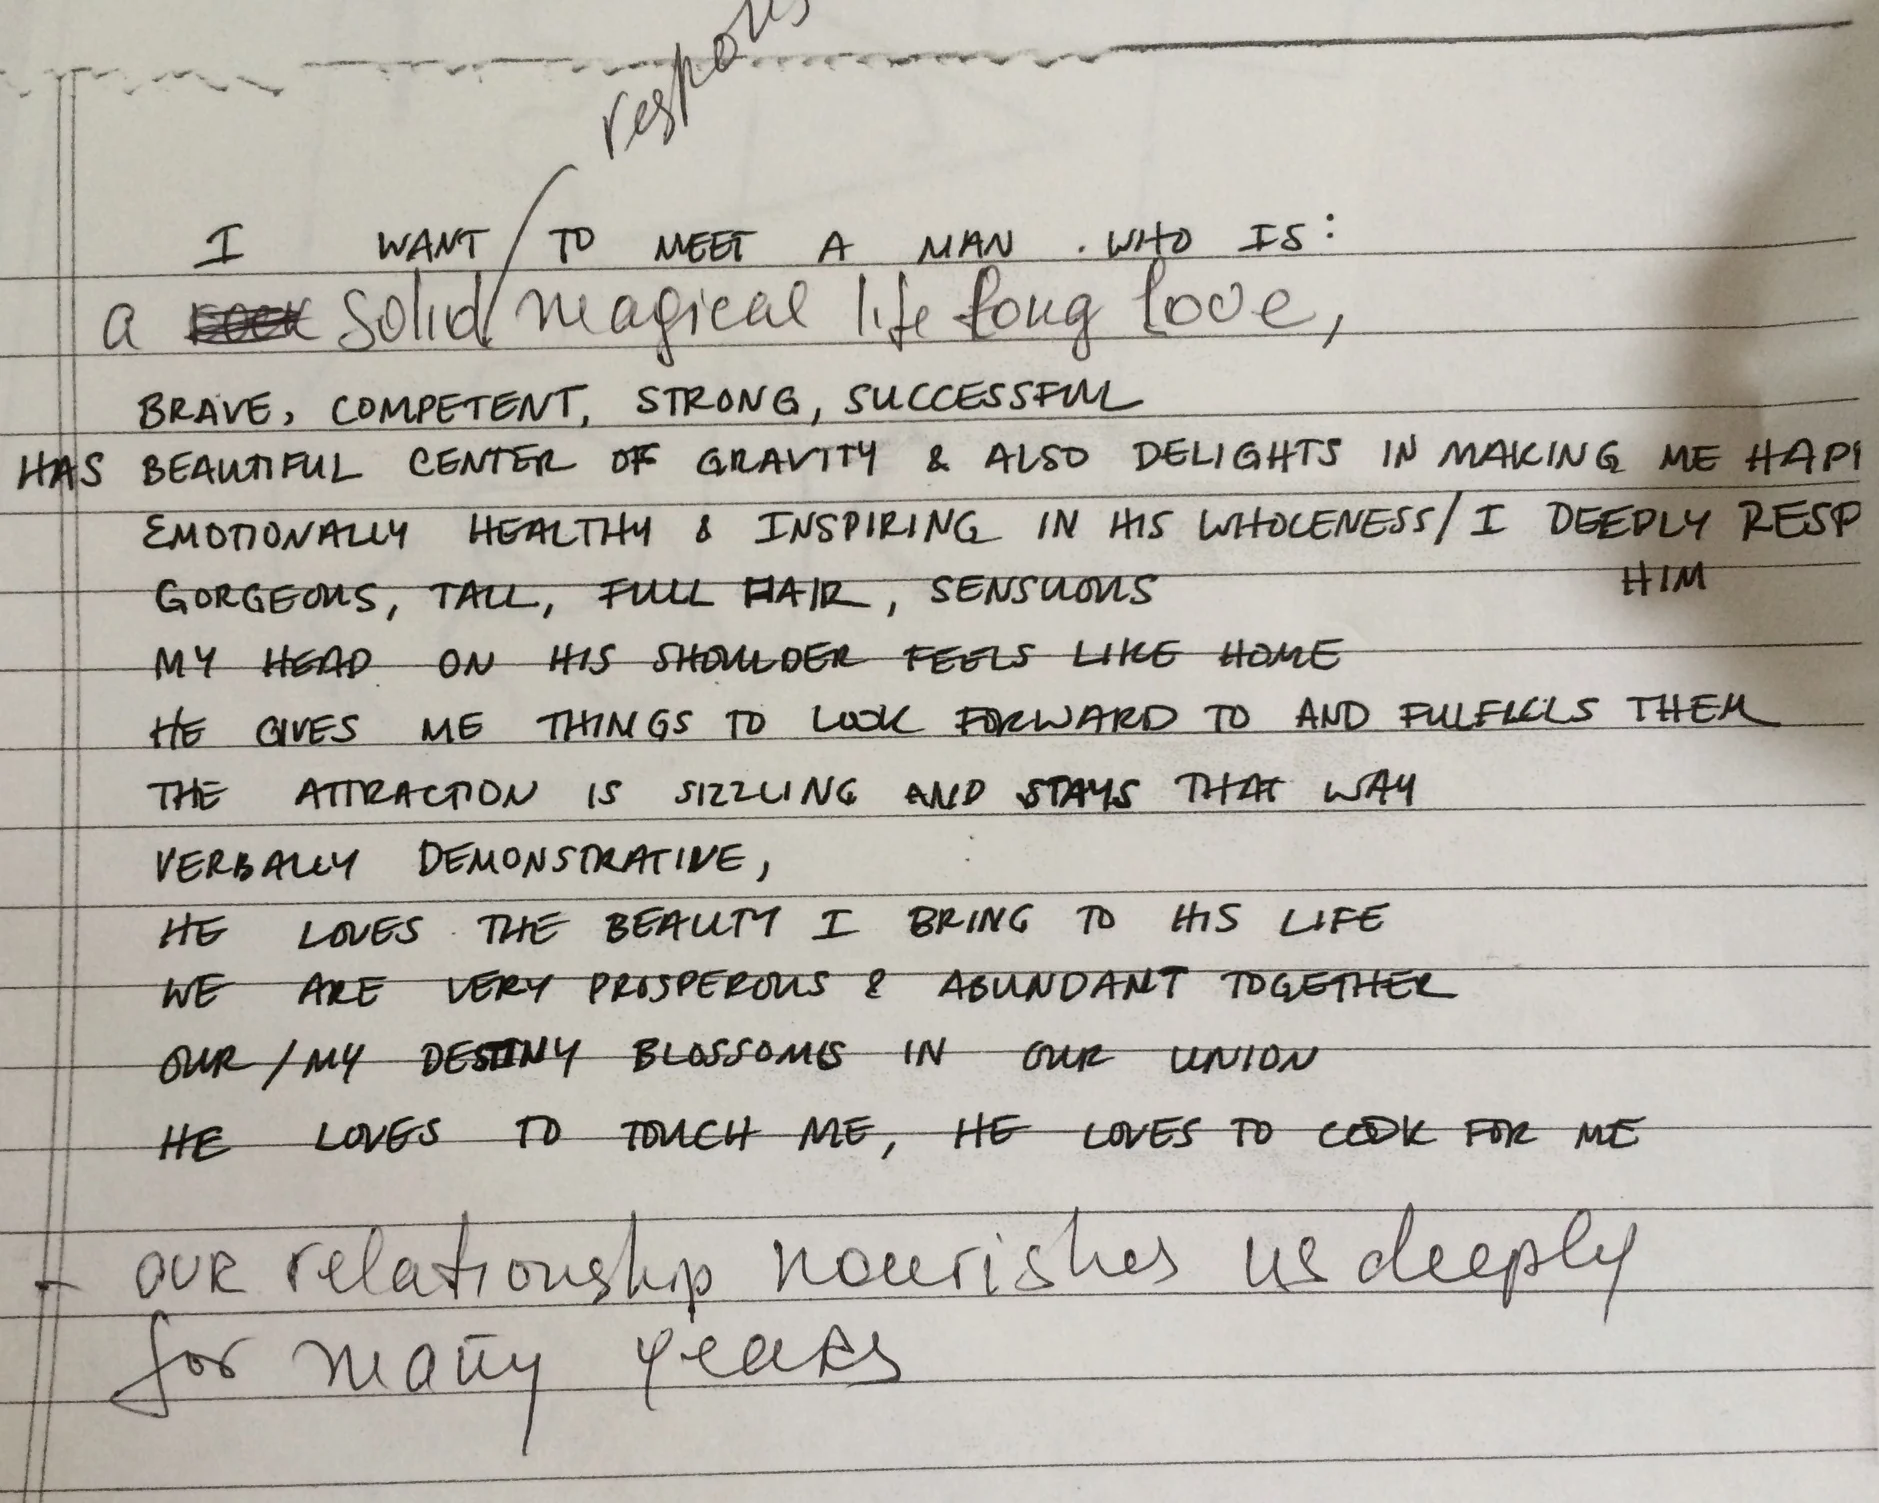 I WANT TO MEET A MAN . WHO IS:
a solid/magical life long love,
BRAVE, COMPETENT, STRONG, SUCCESSFUL
HAS BEAUTIFUL CENTER OF GRAVITY & ALSO DELIGHTS IN MAKING ME HAPP
EMOTIONALLY HEALTHY & INSPIRING IN HIS WHOLENESS/I DEEPLY RESP
HIM
GORGEOUS, TALL, FULL HAIR, SENSUOUS
MY HEAD ON HIS SHOULDER FEELS LIKE HOME
HE GIVES ME THINGS TO LOOK FORWARD TO AND FULFILLS THEM
THE ATTRACTION IS SIZZLING AND STAYS THAT WAY
VERBALLY DEMONSTRATIVE,
HE LOVES THE BEAUTY I BRING TO HIS LIFE
WE ARE VERY PROSPEROUS & ABUNDANT TOGETHER
OUR/MY DESTINY BLOSSOMS IN OUR UNION
HE LOVES TO TOUCH ME, HE LOVES TO COOK FOR ME
- OUR relationship nourishes us deeply
for many years